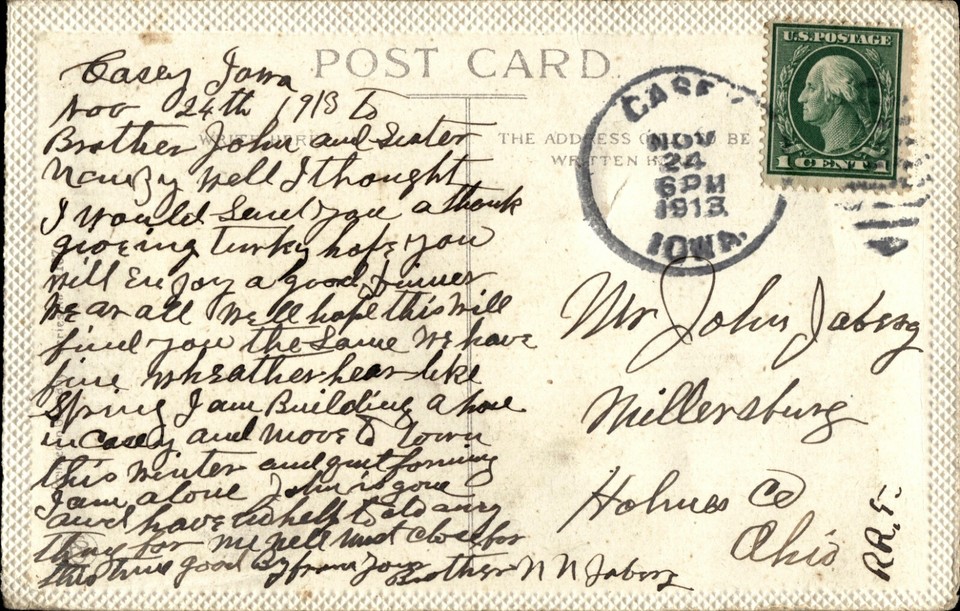 POST CARD
WRITE HERE
THE ADDRESS ONLY TO BE
WRITTEN HERE
U.S. POSTAGE
1 CENT 1
CASEY
NOV
24
6 PM
1913
IOWA.
Casey Iowa
Nov 24th 1913 to
Brother John and Sister
Well I thought
I would Send you a thank
giveing turky hope you
will Enjoy a good Dinner
We ar all Well hope this Will
find you the Same We have
fine Wheather hear like
Spring I am Building a hous
in Casey and move to Town
this Winter and quit farming
I am alone John is gone
and have no help to do any
thing for me well must close for
this time good By from your
Brother N N Jaberg
Mr John Jaberg
Millersburg
Holmes Co
Ohio
RR.5.